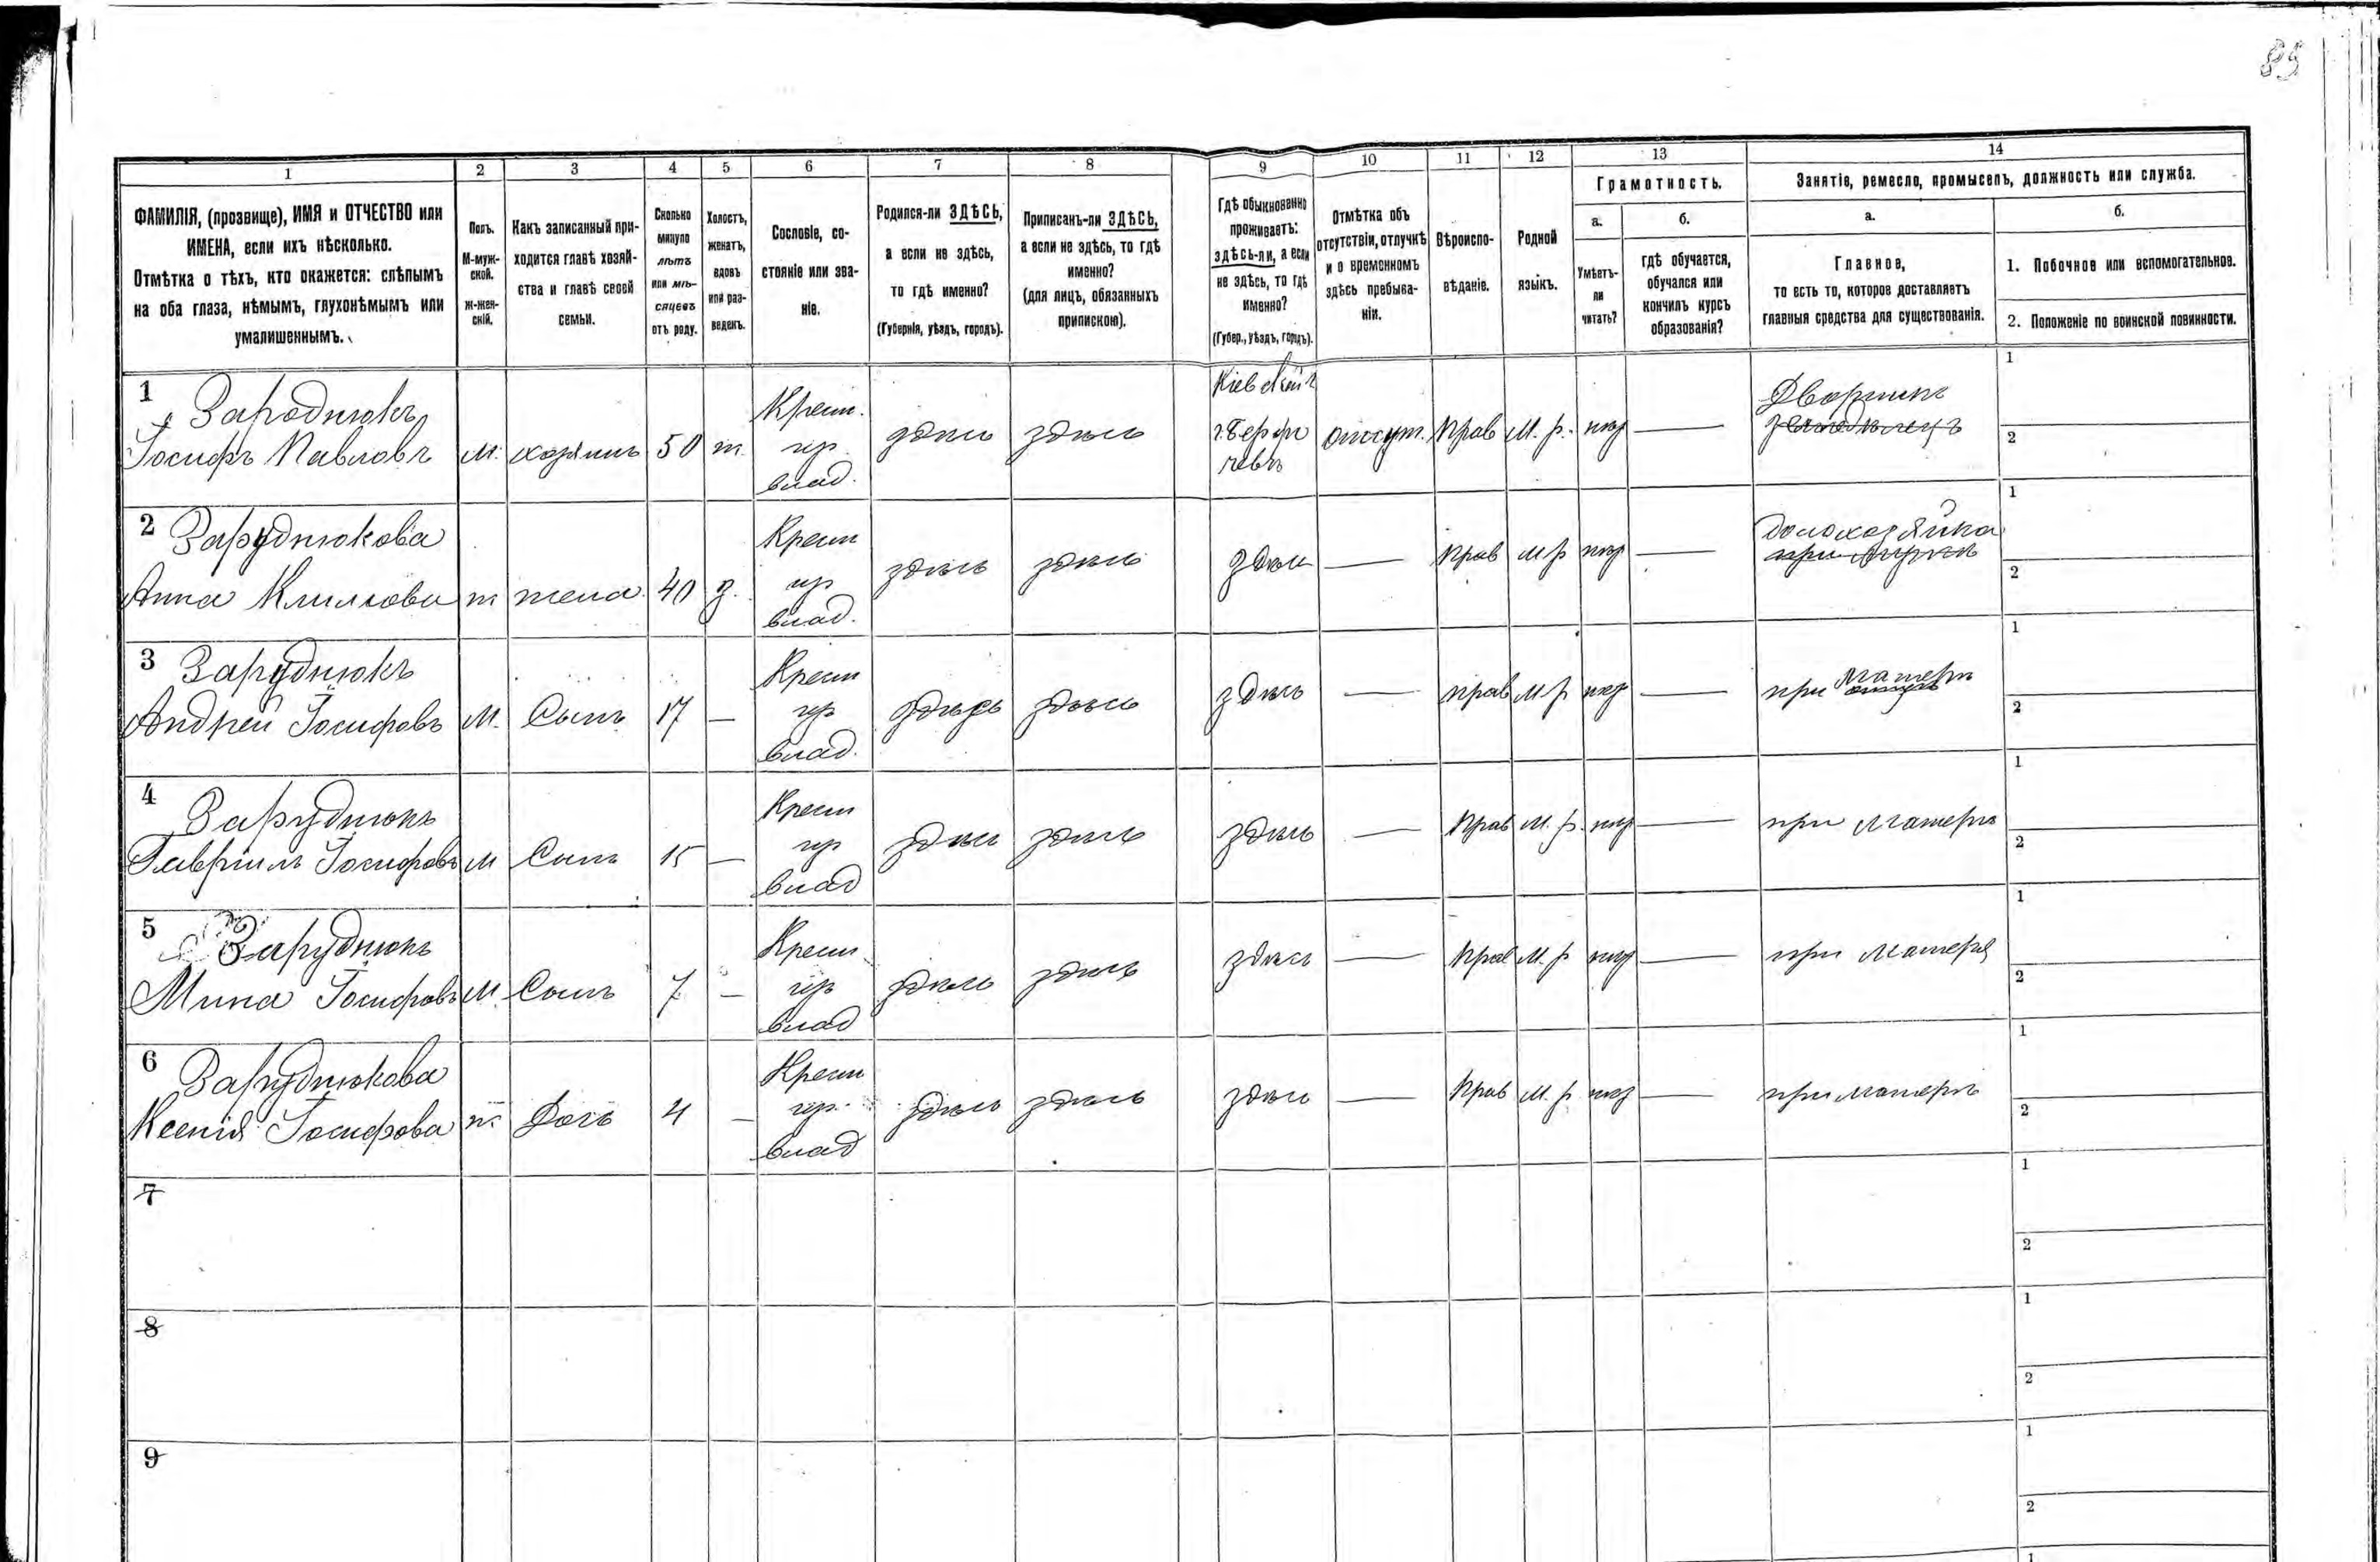 85
1 2 3 4 5 6 7 8 9 10 11 12 13 14
ФАМИЛІЯ, (прозвище), ИМЯ и ОТЧЕСТВО или
ИМЕНА, если ихъ нѣсколько.
Отмѣтка о тѣхъ, кто окажется: слѣпымъ
на оба глаза, нѣмымъ, глухонѣмымъ или
умалишеннымъ.
Полъ.
М-муж-
ской.
ж-жен-
скій.
Какъ записанный при-
ходится главѣ хозяй-
ства и главѣ своей
семьи.
Сколько
минуло
лѣтъ
или мѣ-
сяцевъ
отъ роду.
Холостъ,
женатъ,
вдовъ
или раз-
веденъ.
Сословіе, со-
стояніе или зва-
ніе.
Родился-ли ЗДѢСЬ,
а если не здѣсь,
то гдѣ именно?
(Губернія, уѣздъ, городъ).
Приписанъ-ли ЗДѢСЬ,
а если не здѣсь, то гдѣ
именно?
(для лицъ, обязанныхъ
припискою).
Гдѣ обыкновенно
проживаетъ:
здѣсь-ли, а если
не здѣсь, то гдѣ
именно?
(Губер., уѣздъ, городъ).
Отмѣтка объ
отсутствіи, отлучкѣ
и о временномъ
здѣсь пребыва-
ніи.
Вѣроиспо-
вѣданіе.
Родной
языкъ.
Грамотность.
а.
Умѣетъ-
ли
читать?
б.
гдѣ обучается,
обучался или
кончилъ курсъ
образованія?
Занятіе, ремесло, промыселъ, должность или служба.
а.
Главное,
то есть то, которое доставляетъ
главныя средства для существованія.
б.
1. Побочное или вспомогательное.
2. Положеніе по воинской повинности.
1 Зароднюкъ
Іосифъ Павловъ м. хозяинъ 50 ж. Крест. пр. влад. здѣсь здѣсь Кіевской г. Бердичевъ отсут. прав М. р. нѣт — Дворникъ земледѣлецъ 1 2
2 Заруднюкова
Анна Климова ж жена 40 з. Крест пр влад. здѣсь здѣсь здѣсь — прав М р нѣт — домохозяйка при мужѣ 1 2
3 Заруднюкъ
Андрей Іосифовъ М. Сынъ 17 — Крест пр влад. здѣсь здѣсь здѣсь — прав М р нѣт — при матери отцѣ 1 2
4 Заруднюкъ
Гавріилъ Іосифовъ М Сынъ 15 — Крест пр влад здѣсь здѣсь здѣсь — прав М. р. нѣт — при матерѣ 1 2
5 Заруднюкъ
Мина Іосифовъ М Сынъ 7 — Крест пр влад здѣсь здѣсь здѣсь — прав М. р нѣт — при матерѣ 1 2
6 Заруднюкова
Ксенія Іосифова ж Дочь 4 — Крест пр. влад здѣсь здѣсь здѣсь — прав М. р нѣт — при матерѣ 1 2
7 1 2
8 1 2
9 1 2
1